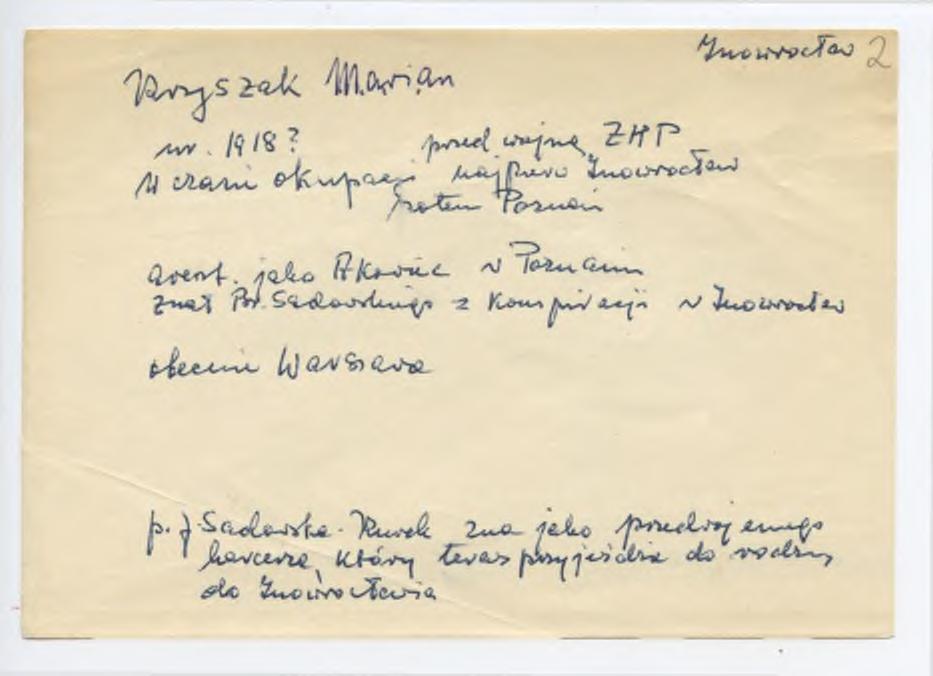 Inowrocław 2
Kryszak Marian
ur. 1918? przed wojną ZHP
W czasie okupacji najpierw Inowrocław
potem Poznań
areszt. jako AKowiec w Poznaniu
znał Br. Sadowskiego z konspiracji w Inowrocław
obecnie Warszawa
p. J. Sadowska-Kurek zna jako przedwojennego
harcerza, który teraz przyjeżdża do rodziny
do Inowrocławia